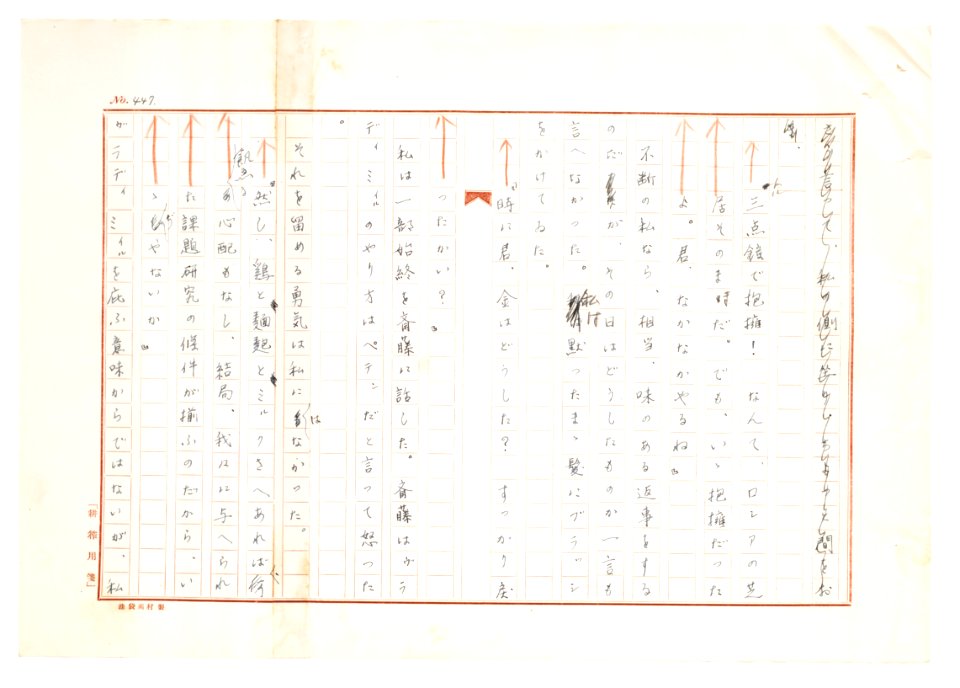 No. 447.
「三点鐘で抱擁！なんて、ロシアの芝
居そのまゝだ。でも、いゝ抱擁だった
よ。君、なかなかやるね。」
不断の私なら、相当、味のある返事をする
のだが、その日はどうしたものか一言も
言へなかった。私は黙ったまゝ髪にブラッシ
をかけてゐた。
「時に君、金はどうした？すっかり戻
ったかい？」
私は一部始終を斎藤に話した。斎藤はヴラ
ディミィルのやり方はペテンだと言って怒った
。
それを留める勇気は私にはなかった。
「然し、鶏と麺麭とミルクさへあれば
飢ゑる心配もなし、結局、我々に与へられ
た課題研究の條件が揃ふのだから、い
ゝぢやないか」
ヴラディミィルを庇ふ意味からではないが、私
「耕筰用箋」